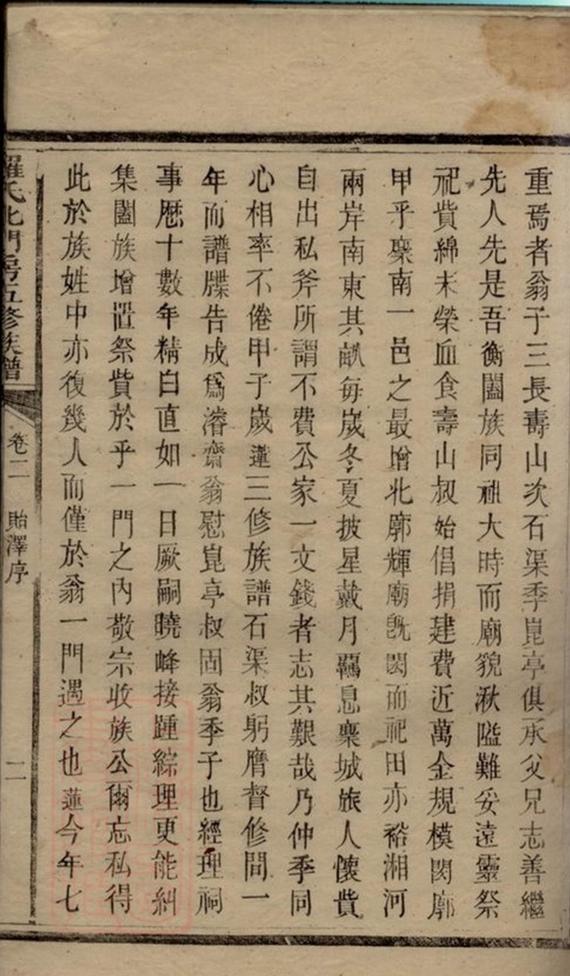 重焉者翁子三長壽山次石渠季崑亭俱承父兄志善繼
先人先是吾衡闔族同祖大時而廟貌湫隘難妥遠靈祭
祀貲綿未榮血食壽山叔始倡捐建費近萬金規模閎廓
甲乎稟南一邑之最增北廓輝廟旣閎而祀田亦裕湘河
兩岸南東其畝每嵗冬夏披星戴月羈息稟城旅人懷貲
自出私斧所謂不費公家一文錢者志其艱哉乃仲季同
心相率不倦甲子嵗蓮三修族譜石渠叔躬膺督修間一
年而譜牒告成爲濬齋翁慰崑亭叔固翁季子也經理祠
事歷十數年精白直如一日厥嗣曉峰接踵綜理更能糾
集闔族增置祭貲於乎一門之内敬宗收族公爾忘私得
此於族姓中亦復幾人而僅於翁一門遇之也蓮今年七
羅氏北門房五修族譜
卷二
貽澤序
二